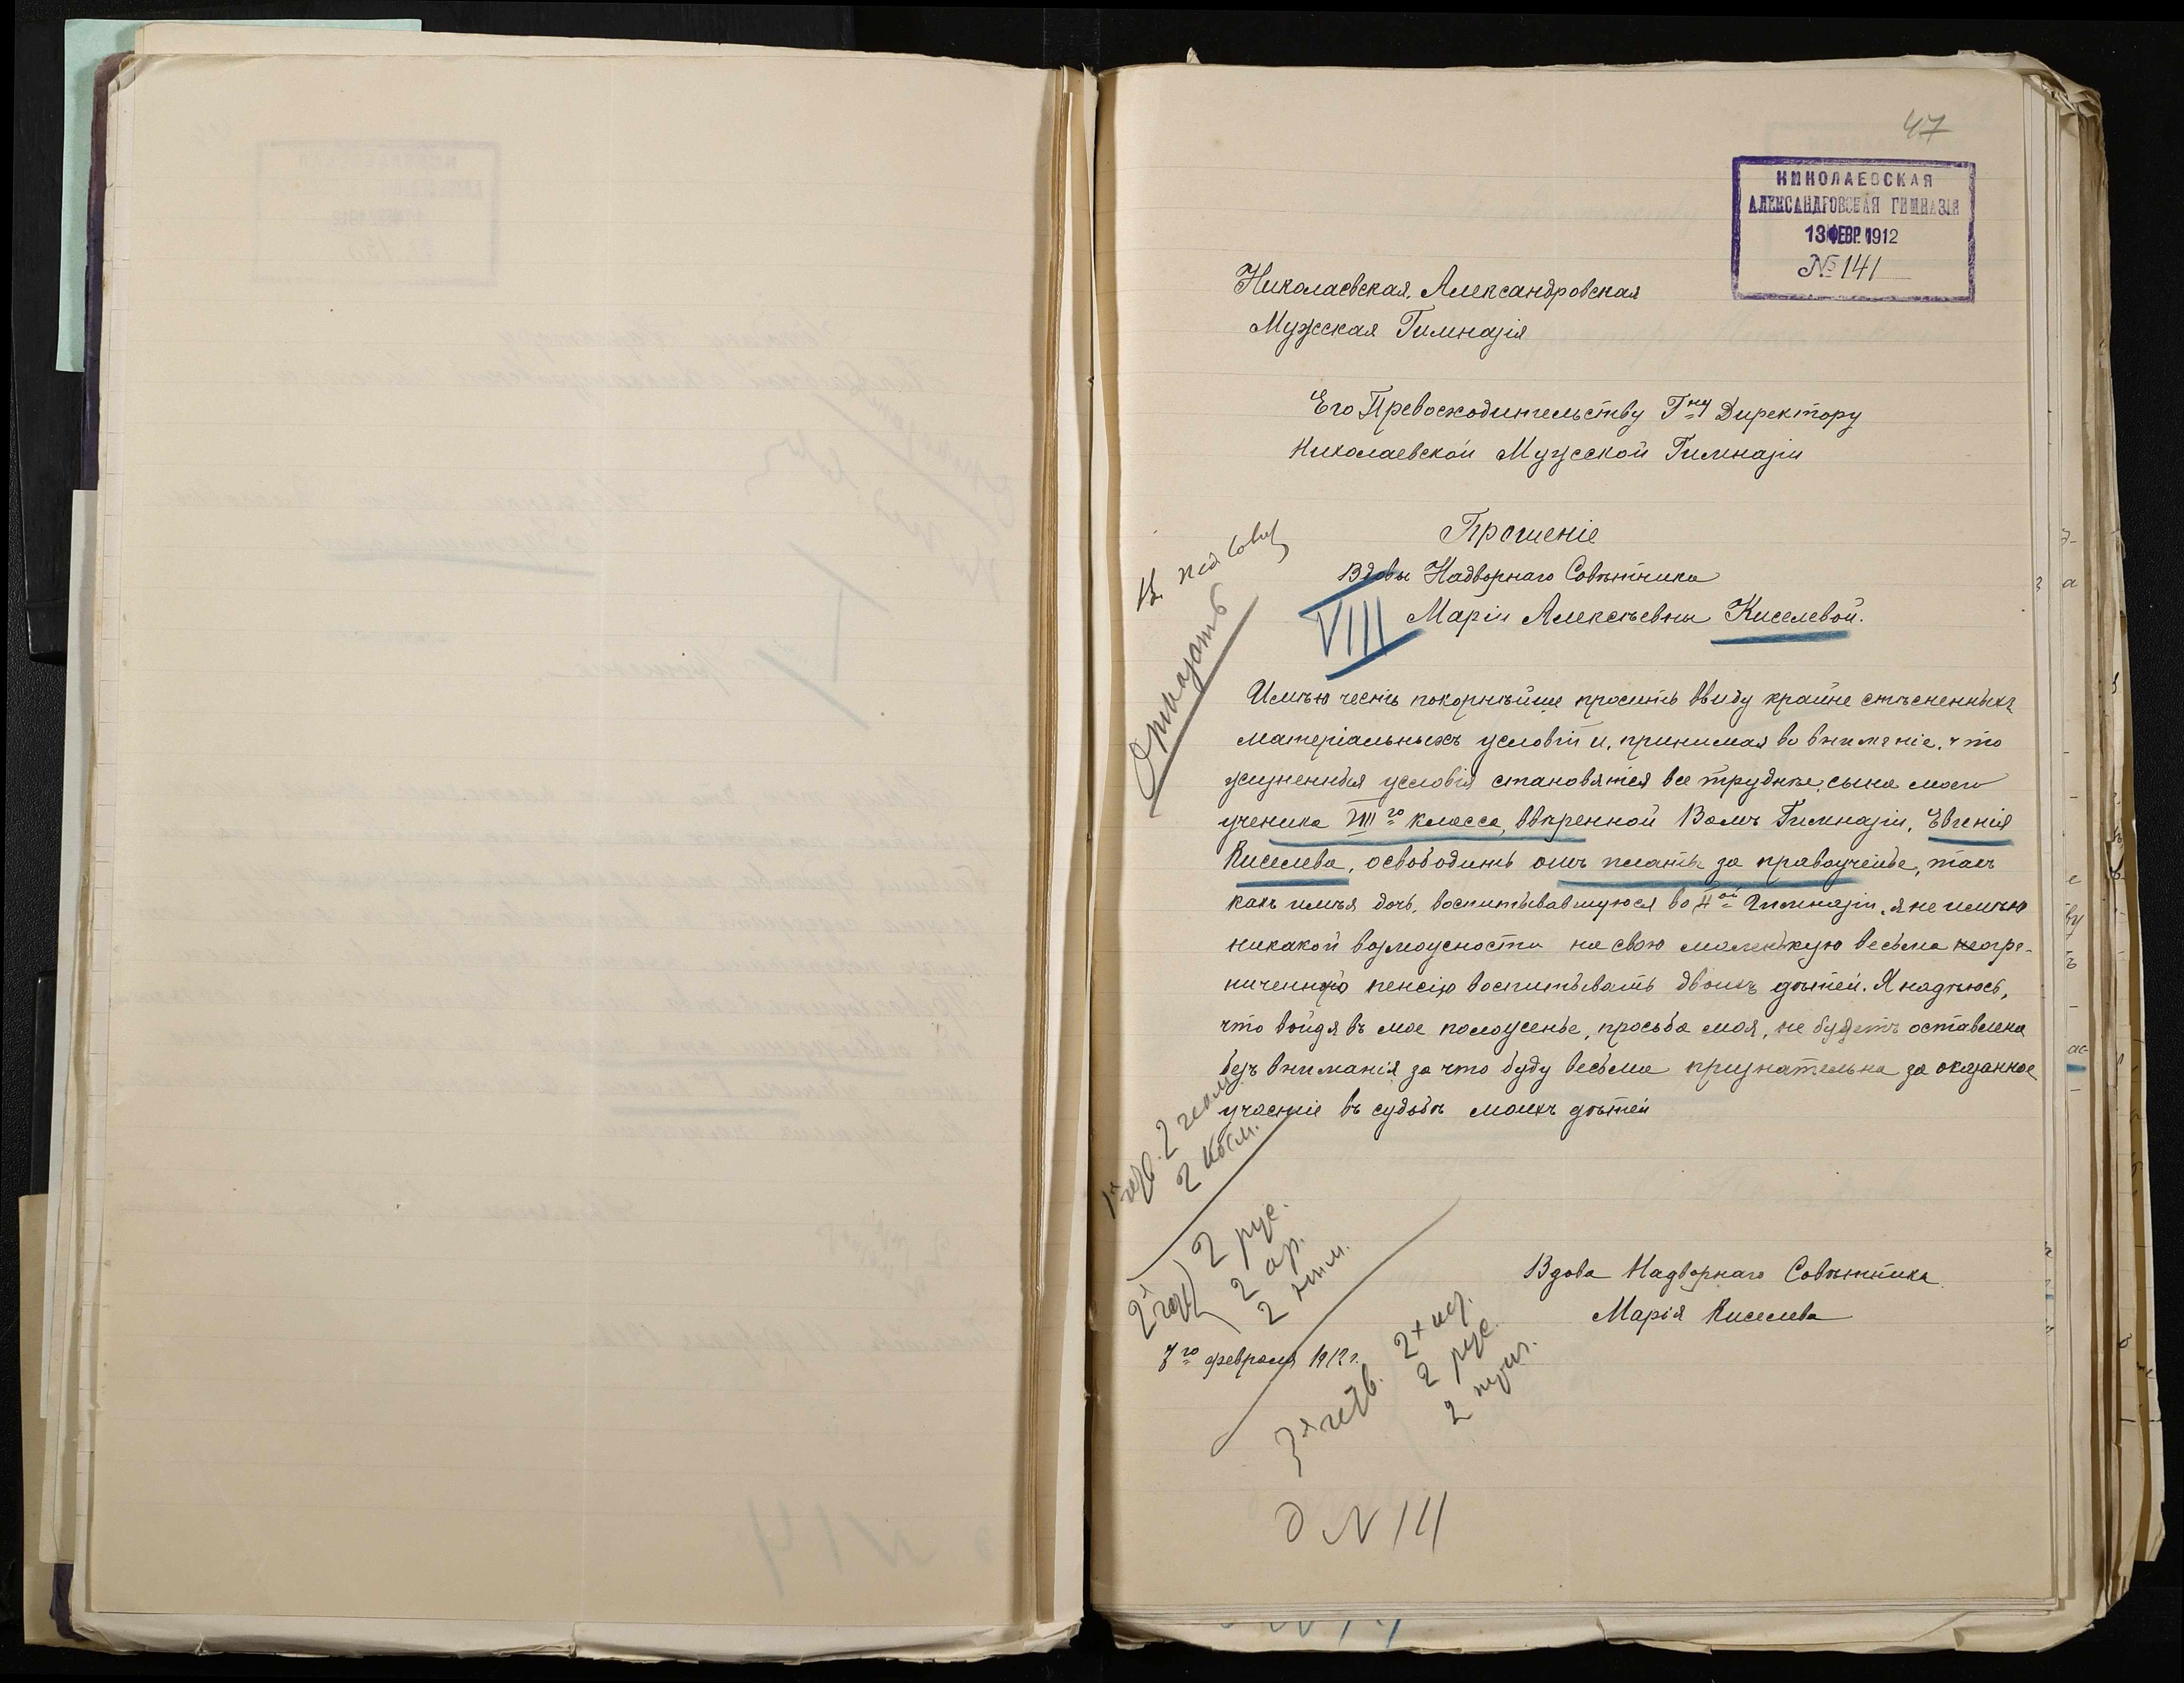 47
НИКОЛАЕВСКАЯ
АЛЕКСАНДРОВСКАЯ ГИМНАЗІЯ
13 ФЕВР. 1912
№ 141
Николаевская Александровская
Мужская Гимназія
Его Превосходительству Г-ну Директору
Николаевской Мужской Гимназіи
Прошеніе
Вдовы Надворнаго Совѣтника
VIII
Маріи Алексѣевны Киселевой.
В. пед. совѣ
Отказать
Имѣю честь покорнѣйше просить ввиду крайне стѣсненныхъ
матеріальныхъ условій и, принимая во вниманіе, что
жизненныя условія становятся все труднѣе, сына моего
ученика VIII го класса, ввѣренной Вамъ Гимназіи, Евгенія
Киселева, освободить отъ платы за правоученье, такъ
какъ имѣя дочь, воспитывавшуюся во II ой Гимназіи, я не имѣю
никакой возможности на свою маленькую весьма неогра-
ниченную пенсію воспитывать двоихъ дѣтей. Я надѣюсь,
что войдя въ мое положенье, просьба моя, не будетъ оставлена
безъ вниманія за что буду весьма признательна за оказанное
участіе въ судьбѣ моихъ дѣтей
1я четв. 2
2 косм.
2я четв. 2 рус.
2 ар.
2 нѣм.
Вдова Надворнаго Совѣтника
Марія Киселева
7 го февраля 1912 г.
3я четв. 2
2 рус.
2
д N 14